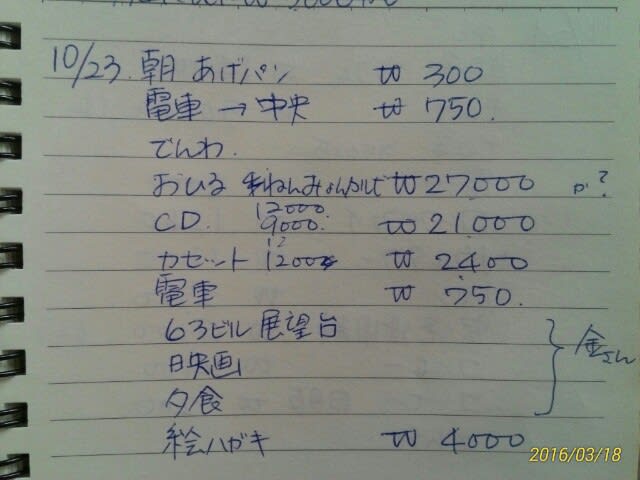 10/23. 朝 あげパン ₩ 300
電車 → 中央 ₩ 750.
でんわ.
おひる ねんみょんカルビ ₩ 27000 か?
12000.
CD. 9000. ₩ 21.000
カセット 1200 ₩ 2400
電車 ₩ 750.
63ビル 展望台
映画 金さん
夕食
絵ハガキ ₩ 4000
2016/03/18